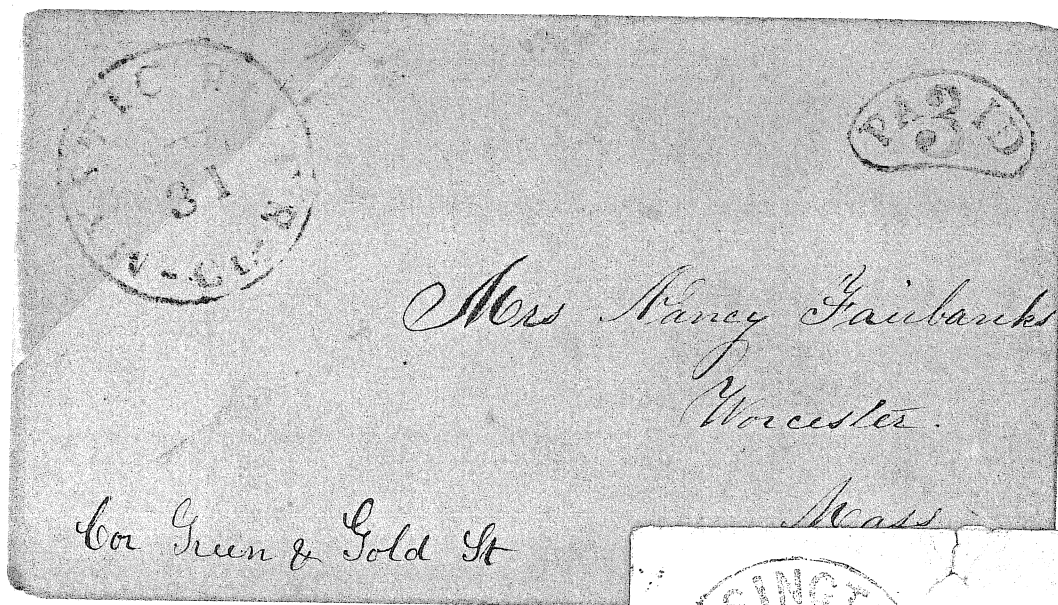 31
PAID
2
Mrs Nancy Fairbanks
Worcester.
Mass
Cor Green & Gold St